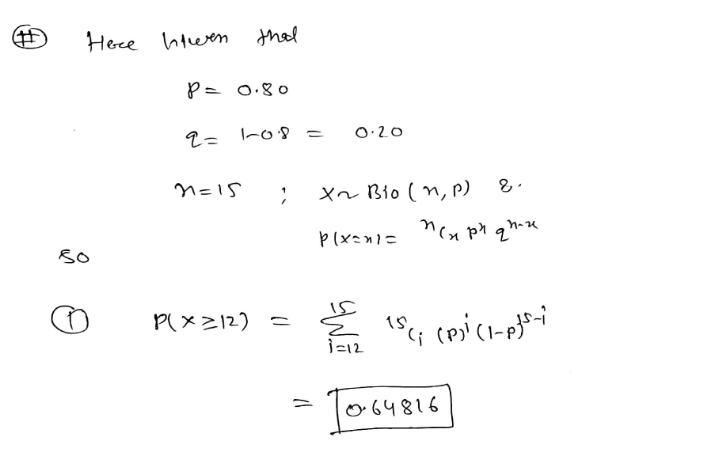 # Here given that
p = 0.80
q = 1-0.8 = 0.20
n=15 ; X~ Bio (n, p) &.
P(X=x) = ⁿCₓ pˣ qⁿ⁻ˣ
so
① P(X≥12) = ∑ᵢ₌₁₂¹⁵ ¹⁵Cᵢ (p)ⁱ (1-p)¹⁵⁻ⁱ
= 0.64816